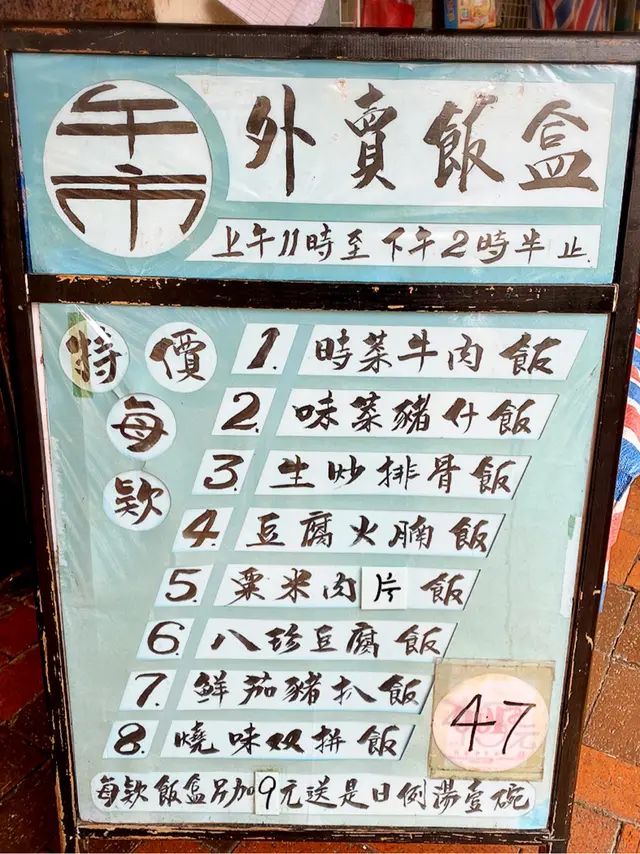 午市
外賣飯盒
上午11時至下午2時半止
特價
每
款
1. 時菜牛肉飯
2. 味菜豬什飯
3. 生炒排骨飯
4. 豆腐火腩飯
5. 粟米肉片飯
6. 八珍豆腐飯
7. 鮮茄豬扒飯
8. 燒味双拼飯
47
每款飯盒另加9元送是日例湯壹碗